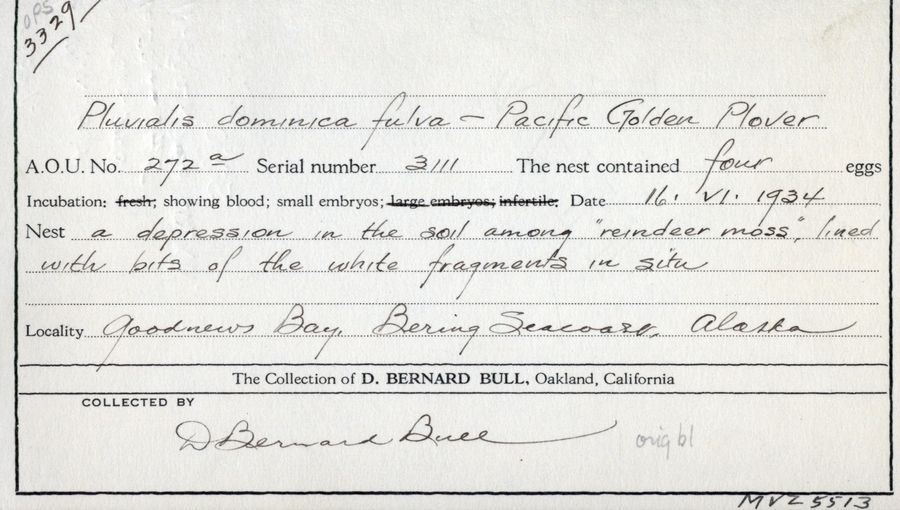 OPS
3329
Pluvialis dominica fulva – Pacific Golden Plover
A.O.U. No. 272 a Serial number 3111 The nest contained four eggs
Incubation: fresh; showing blood; small embryos; large embryos; infertile. Date 16. VI. 1934
Nest a depression in the soil among "reindeer moss", lined
with bits of the white fragments in situ
Locality Goodnews Bay, Bering Seacoast, Alaska
The Collection of D. BERNARD BULL, Oakland, California
COLLECTED BY
D Bernard Bull
orig bl
MVZ 5513